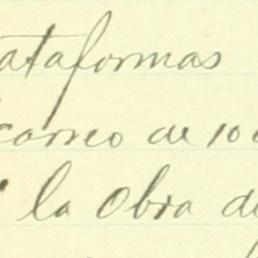 ataformas
correo de 100
la obra de